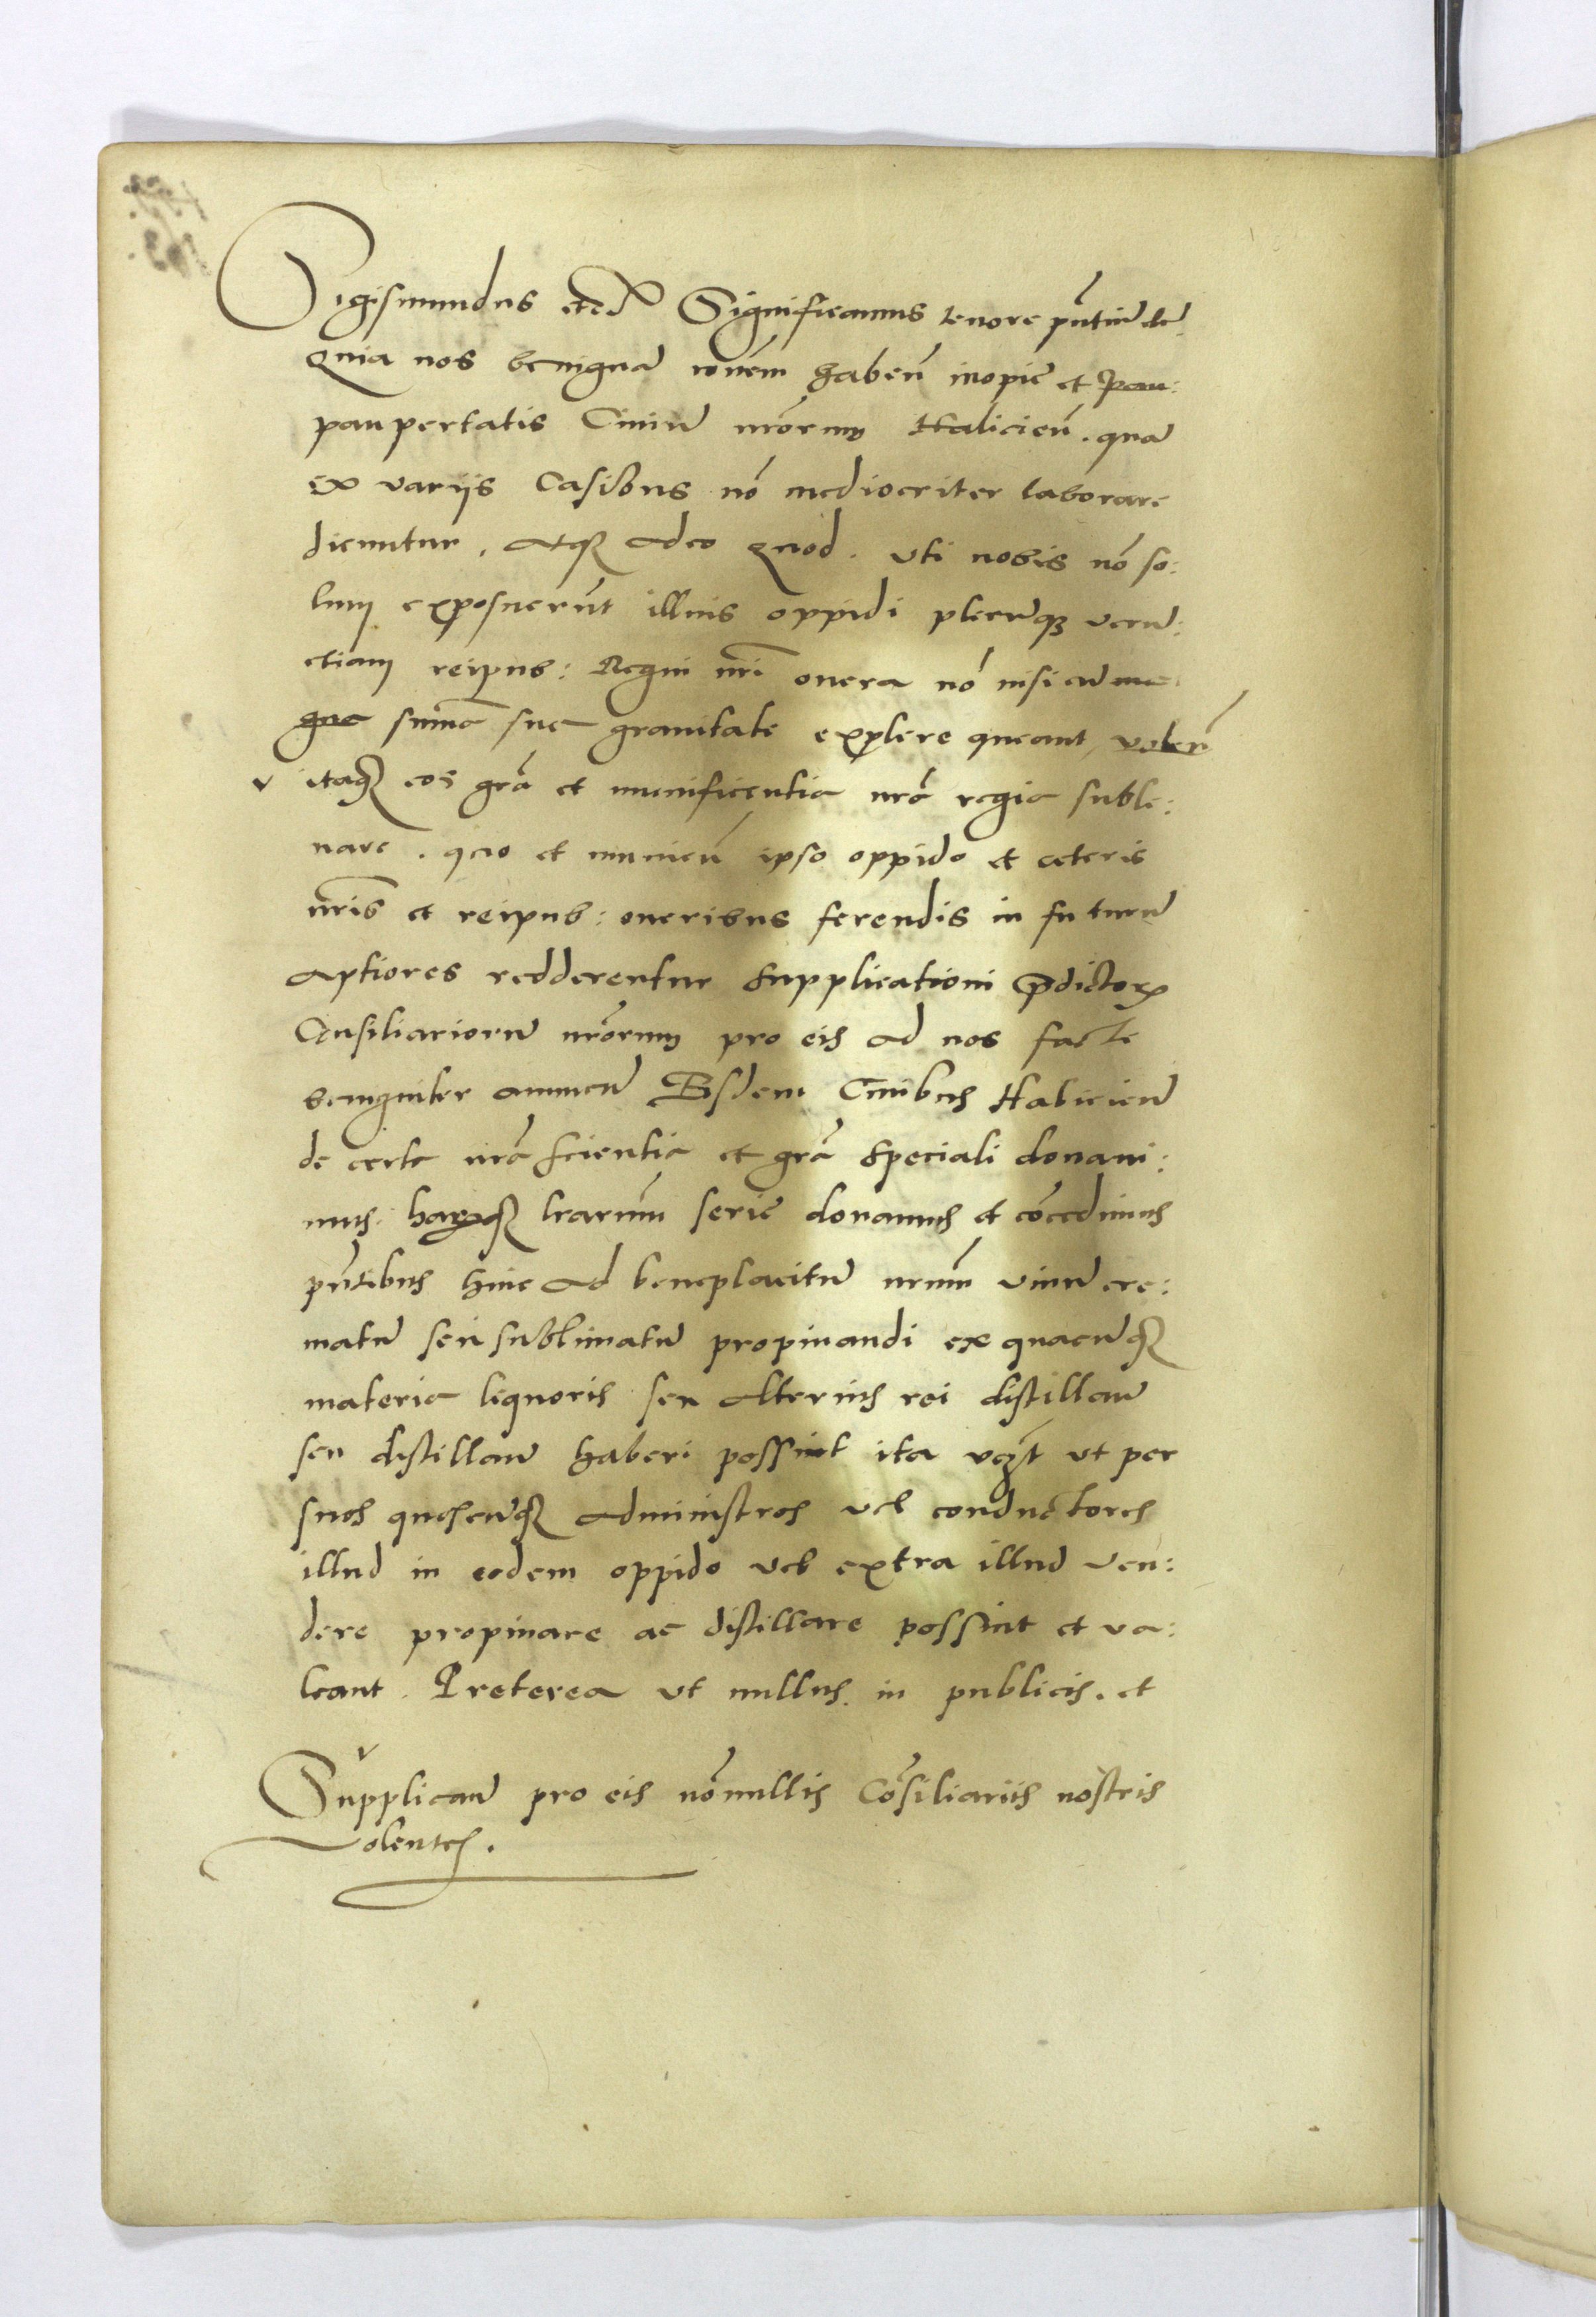 Sigismundus etc Significamus tenore pn̄tium etc
Quia nos benignam ronēm haben̄ inopie et pau:
paupertatis Civium nr̄orum Haliciēn. qua
ex variis Casibus nō mediocriter laborare
dicuntur. atq̨ adeo quod. uti nobis nō so:
lum exposuerūnt illius oppidi pleraq̨ verum:
etiam reipub: Regni nr̄i onera nō nisi cum ma
gna summa sue gravitate explere queant, volen̄
itaq̨ eos grā et munificentia nrā regia suble:
vare. quo et muniēn ipso oppido et ceteris
nr̄is et reipub: oneribus ferendis in futurum
aptiores redderentur supplicationi p̄dictorꝝ
Consiliariorum nr̄orum pro eis ad nos facte
benigniter annuen̄ Eisdem Civibus Haliciēn
de certa nrā scientia et grā speciali donavi:
mus. harumq̨ lr̄arum serie donamus et cōcedimus
pn̄tibus hinc ad beneplacitum nr̄um vinum cre:
matum seu sublimatum propinandi ex quacumq̨
materia liquoris seu alterius rei distillatum
seu distillatum haberi possint ita vꝫt ut per
suos quoscumq̨ administros vel conductores
illud in eodem oppido vel extra illud ven:
dere propinare ac distillare possint et va:
leant. Preterea ut nullus in publicis. et
Supplicatum pro eis nōnullis Cōsiliariis nostris
Volentes.